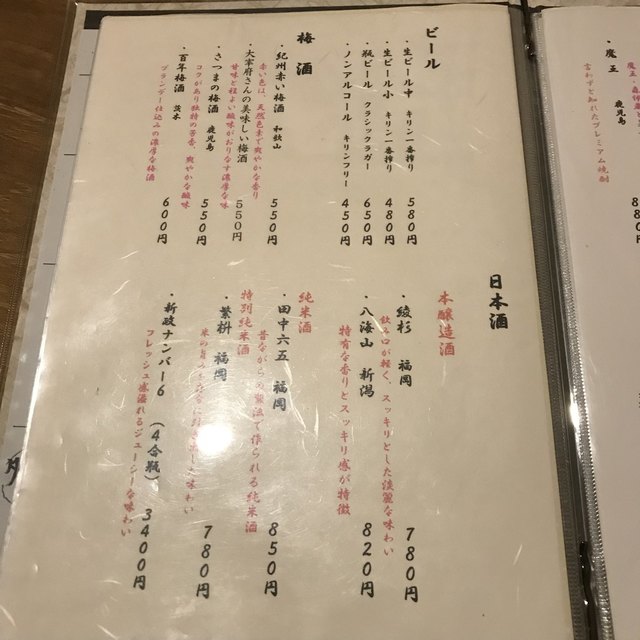 ビール
・生ビール中 キリン一番搾り 580円
・生ビール小 キリン一番搾り 480円
・瓶ビール クラシックラガー 650円
・ノンアルコール キリンフリー 450円
梅酒
・紀州赤い梅酒 和歌山 550円
赤い色は、天然色素で爽やかな香り
・大宰府さんの美味しい梅酒 550円
甘味と程よい酸味がおりなす濃厚な味
・さつまの梅酒 鹿児島 550円
コクがあり独特の芳香、爽やかな酸味
・百年梅酒 茨木 600円
ブランデー仕込みの濃厚な梅酒
日本酒
本醸造酒
・綾杉 福岡 780円
飲み口が軽く、スッキリとした淡麗な味わい
・八海山 新潟 820円
特有な香りとスッキリ感が特徴
純米酒
・田中六五 福岡 850円
昔ながらの製法で作られる純米酒
特別純米酒
・繁桝 福岡 780円
味わい
・新政ナンバー6 (4合瓶) 3400円
フレッシュ感溢れるジューシーな味わい
・魔王 鹿児島
言わずと知れたプレミアム焼酎
魔王、森伊蔵